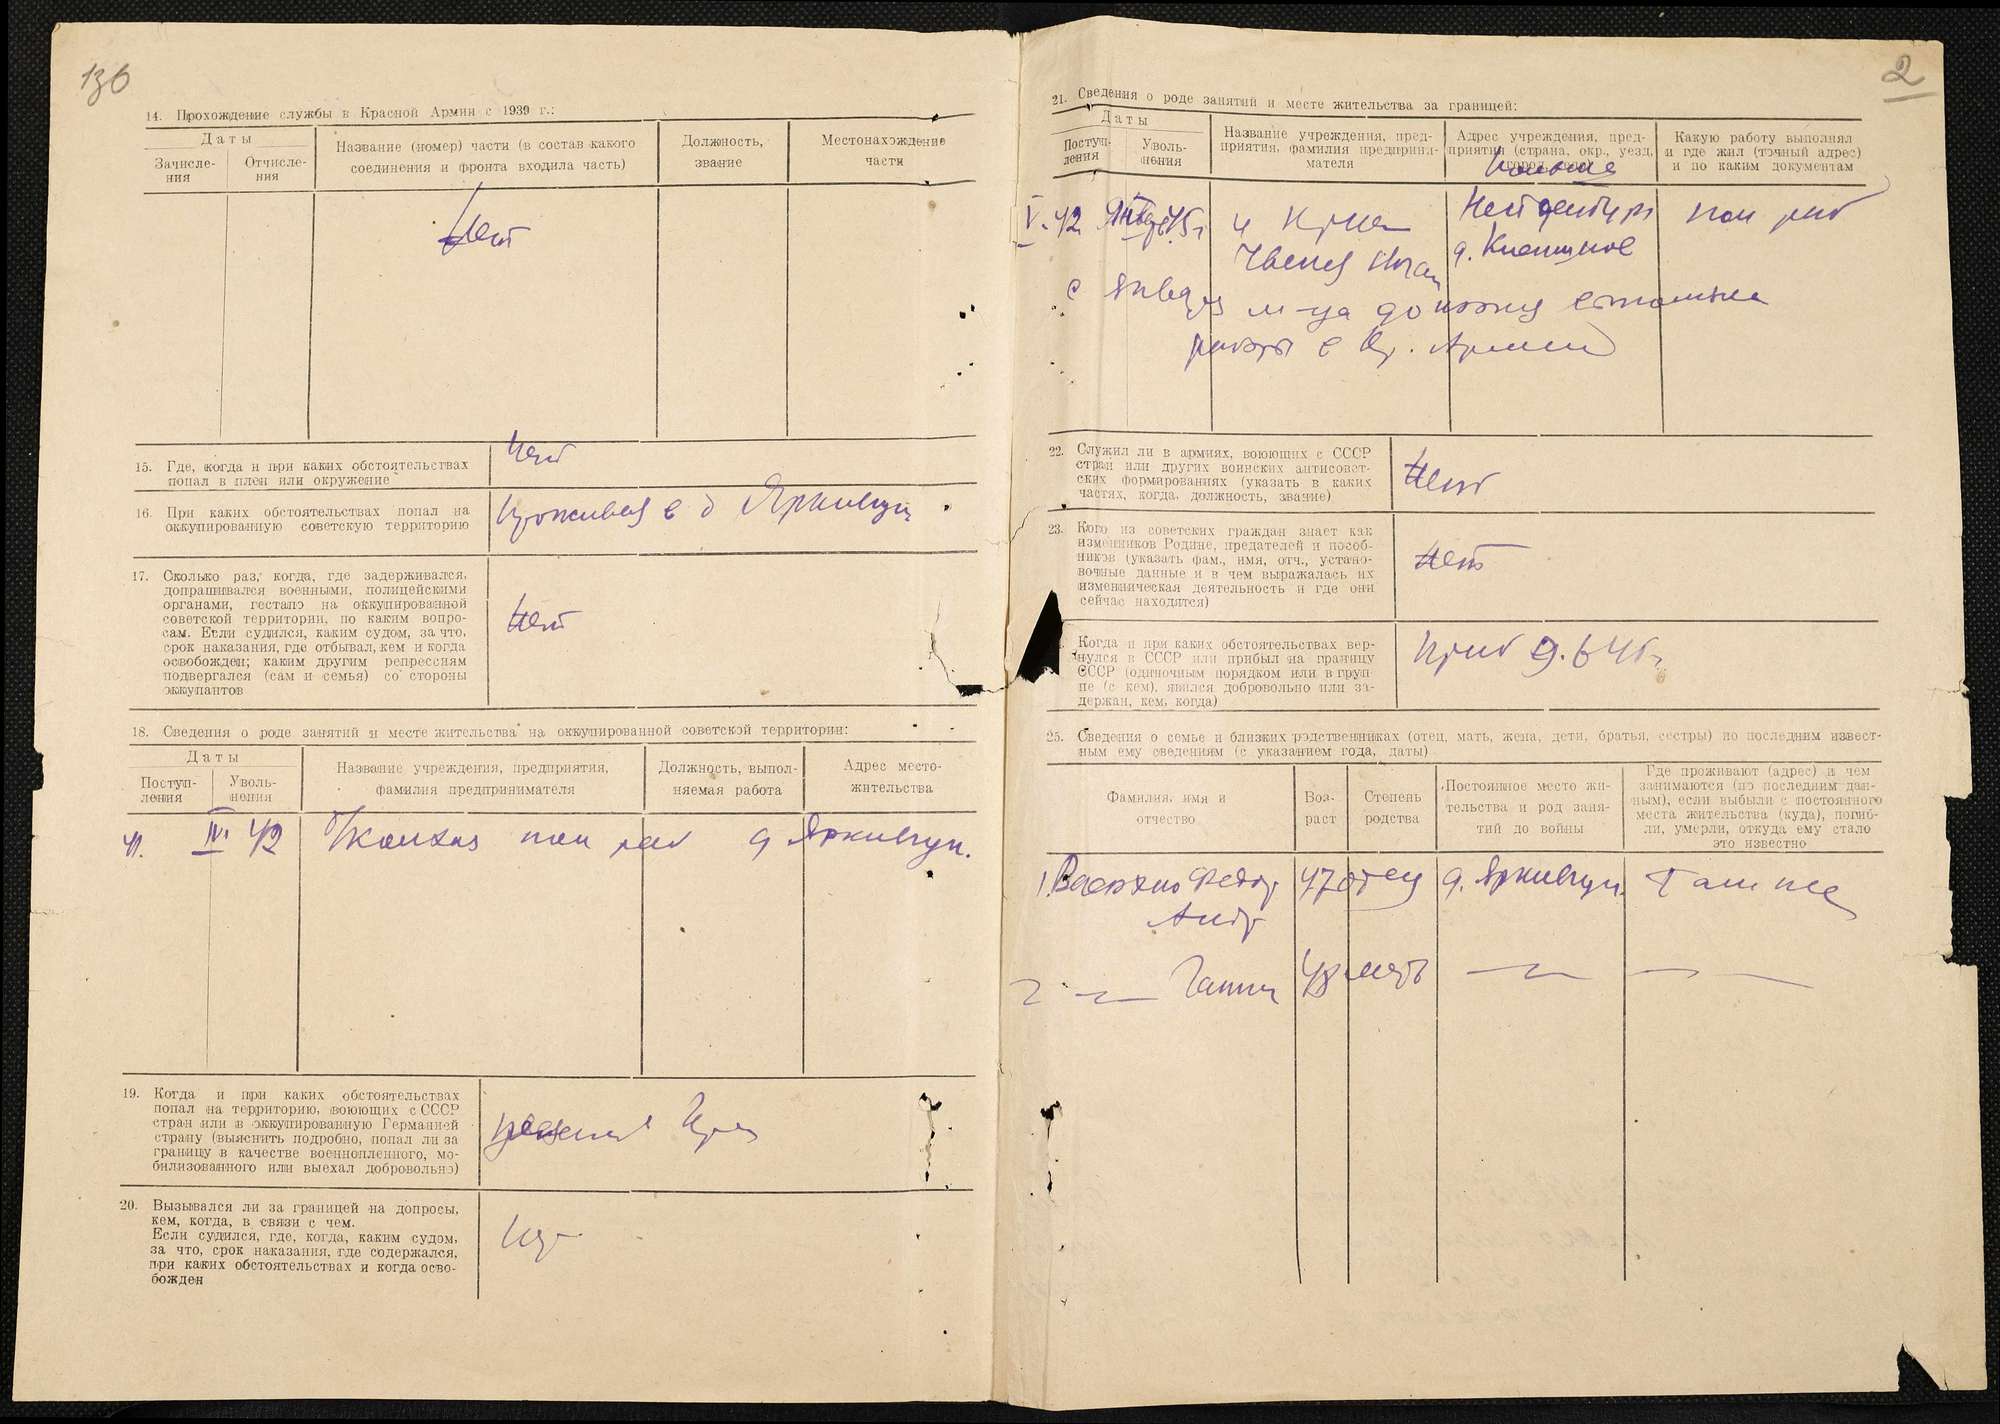 136
14. Прохождение службы в Красной Армии с 1939 г.:
Даты
Зачисле-
ния
Отчисле-
ния
Название (номер) части (в состав какого
соединения и фронта входила часть)
Должность,
звание
Местонахождение
части
Нет
15. Где, когда и при каких обстоятельствах
попал в плен или окружение
Нет
16. При каких обстоятельствах попал на
оккупированную советскую территорию
Проживая в д
17. Сколько раз, когда, где задерживался,
допрашивался военными, полицейскими
органами, гестапо на оккупированной
советской территории, по каким вопро-
сам. Если судился, каким судом, за что,
срок наказания, где отбывал, кем и когда
освобожден; каким другим репрессиям
подвергался (сам и семья) со стороны
оккупантов
Нет
18. Сведения о роде занятий и месте жительства на оккупированной советской территории:
Даты
Поступ-
ления
Уволь-
нения
Название учреждения, предприятия,
фамилия предпринимателя
Должность, выпол-
няемая работа
Адрес место-
жительства
41. IV. 42 Колхоз пол раб д
19. Когда и при каких обстоятельствах
попал на территорию, воюющих с СССР
стран или в оккупированную Германией
страну (выяснить подробно, попал ли за
границу в качестве военнопленного, мо-
билизованного или выехал добровольно)
20. Вызывался ли за границей на допросы,
кем, когда, в связи с чем.
Если судился, где, когда, каким судом,
за что, срок наказания, где содержался,
при каких обстоятельствах и когда осво-
божден
2
21. Сведения о роде занятий и месте жительства за границей:
Даты
Поступ-
ления
Уволь-
нения
Название учреждения, пред-
приятия, фамилия предприни-
мателя
Адрес учреждения, пред-
приятия (страна, окр., уезд,
город, село)
Какую работу выполнял
и где жил (точный адрес)
и по каким документам
V. 42 45 г пол раб
д.
с января м-ца до
работы в Кр. Армии
22. Служил ли в армиях, воюющих с СССР
стран или других воинских антисовет-
ских формированиях (указать в каких
частях, когда, должность, звание)
Нет
23. Кого из советских граждан знает как
изменников Родине, предателей и пособ-
ников (указать фам., имя, отч., устано-
вочные данные и в чем выражалась их
изменническая деятельность и где они
сейчас находятся)
Нет
Когда и при каких обстоятельствах вер-
нулся в СССР или прибыл на границу
СССР (одиночным порядком или в груп-
пе (с кем), явился добровольно или за-
держан, кем, когда)
Приб 9.6 45 г
25. Сведения о семье и близких родственниках (отец, мать, жена, дети, братья, сестры) по последним извест-
ным ему сведениям (с указанием года, даты)
Фамилия, имя и
отчество
Воз-
раст
Степень
родства
Постоянное место жи-
тельства и род заня-
тий до войны
Где проживают (адрес) и чем
занимаются (по последним дан-
ным), если выбыли с постоянного
места жительства (куда), погиб-
ли, умерли, откуда ему стало
это известно
1. Федор 47 отец д. Там же
Андр
2 — Ганна 48 мать — —